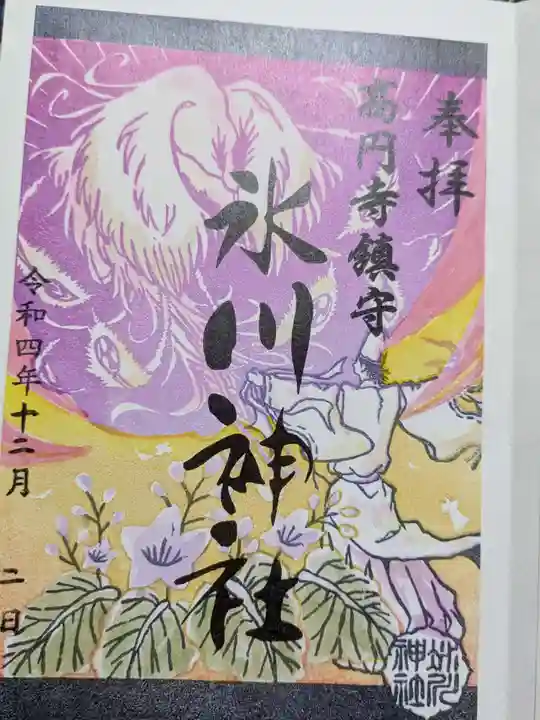 奉拝
高円寺鎮守
氷川神社
令和四年十二月 二日
氷川
神社